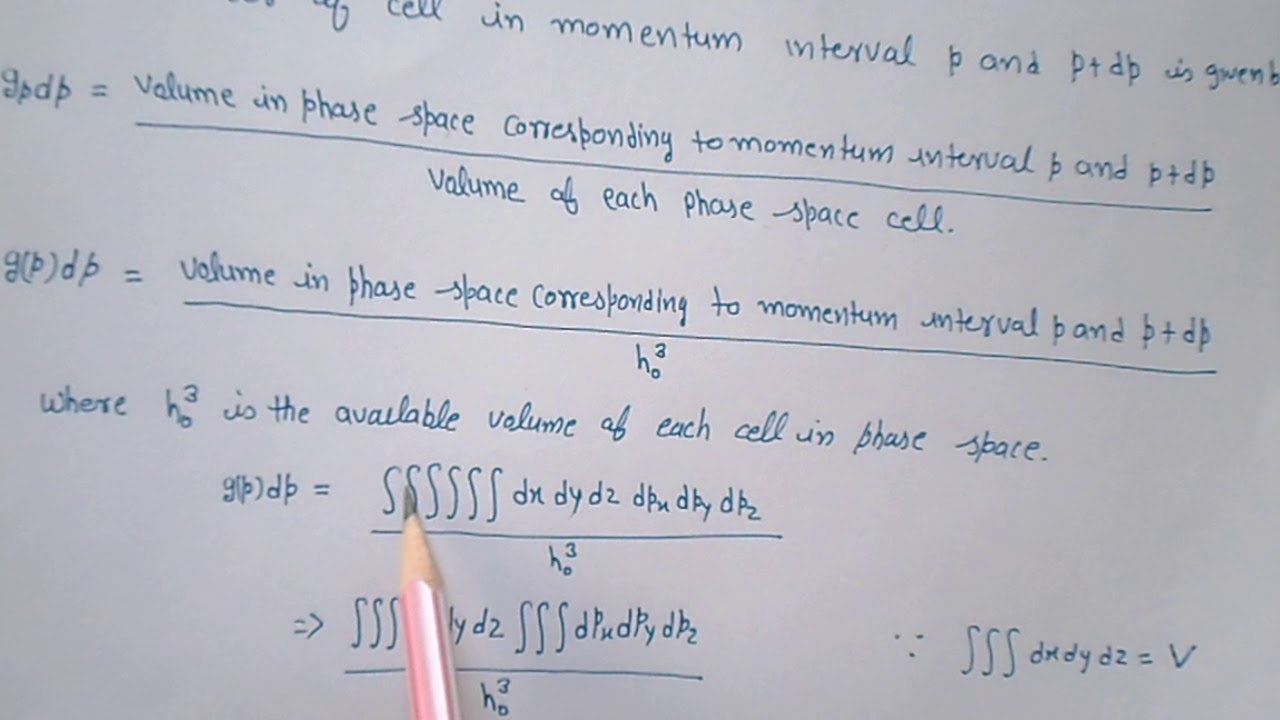 of cell in momentum interval p and p+dp is given b
gpdp = volume in phase space corresponding to momentum interval p and p+dp
volume of each phase space cell.
g(p)dp = volume in phase space corresponding to momentum interval p and p+dp
h₀³
where h₀³ is the available volume of each cell in phase space.
g(p)dp = ∫∫∫∫∫∫ dx dy dz dpx dpy dpz
h₀³
=> ∫∫∫ dy dz ∫∫∫ dpx dpy dpz ∵ ∫∫∫ dx dy dz = V
h₀³